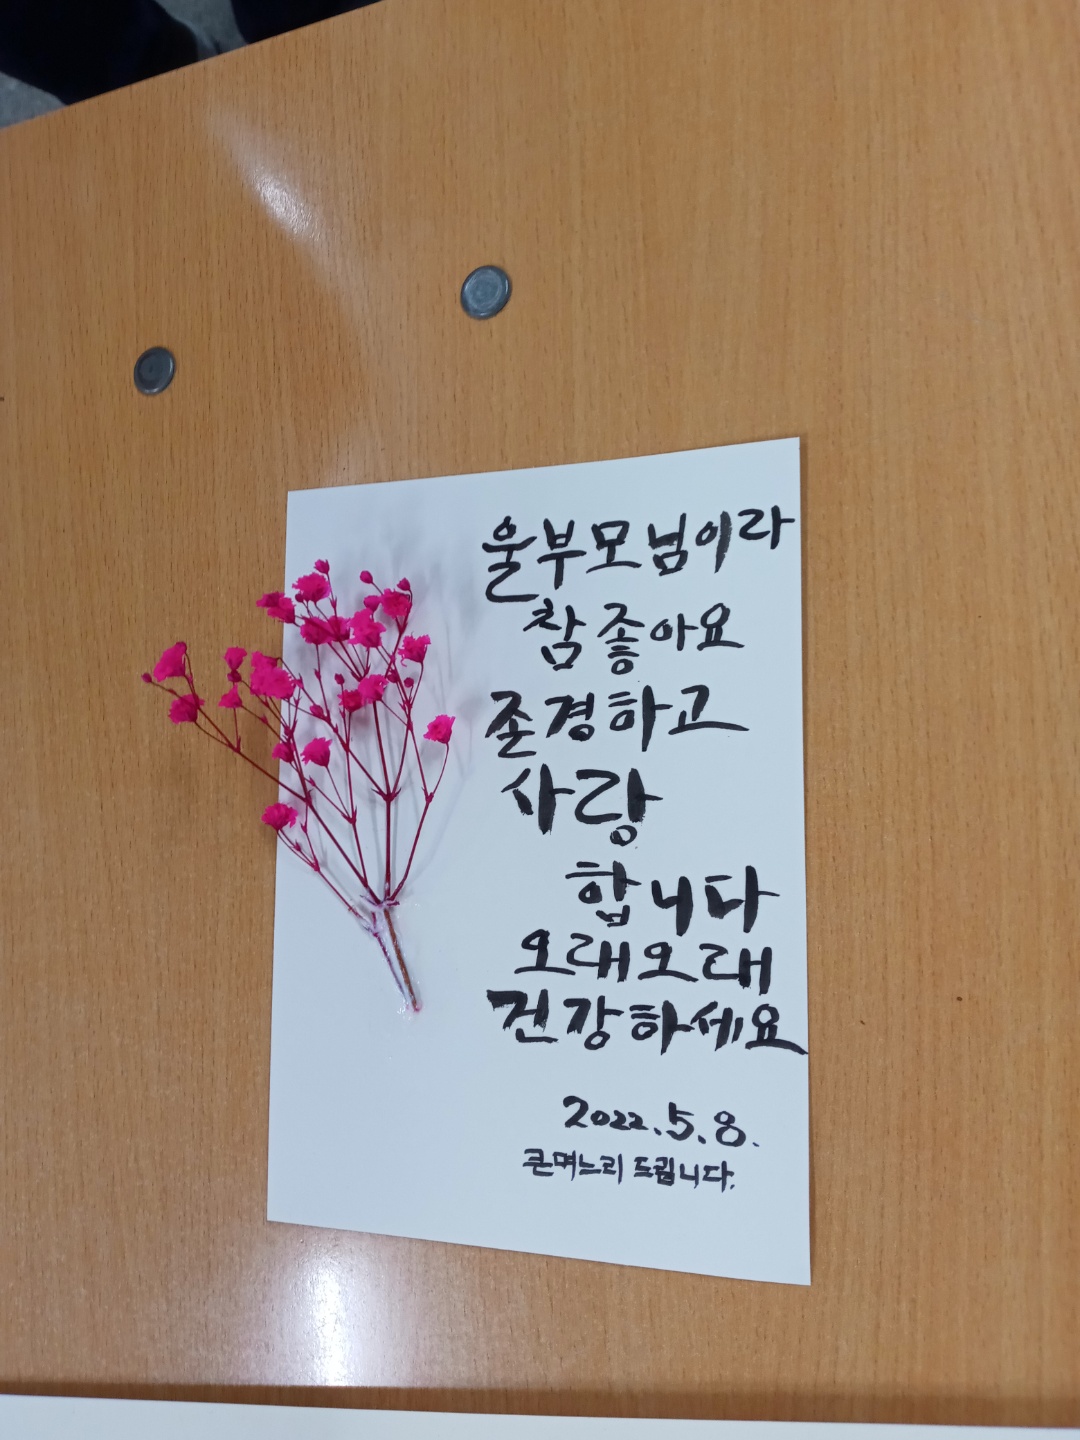 울부모님이라
참좋아요
존경하고
사랑
합니다
오래오래
건강하세요
2022.5.8.
큰며느리 드림니다.